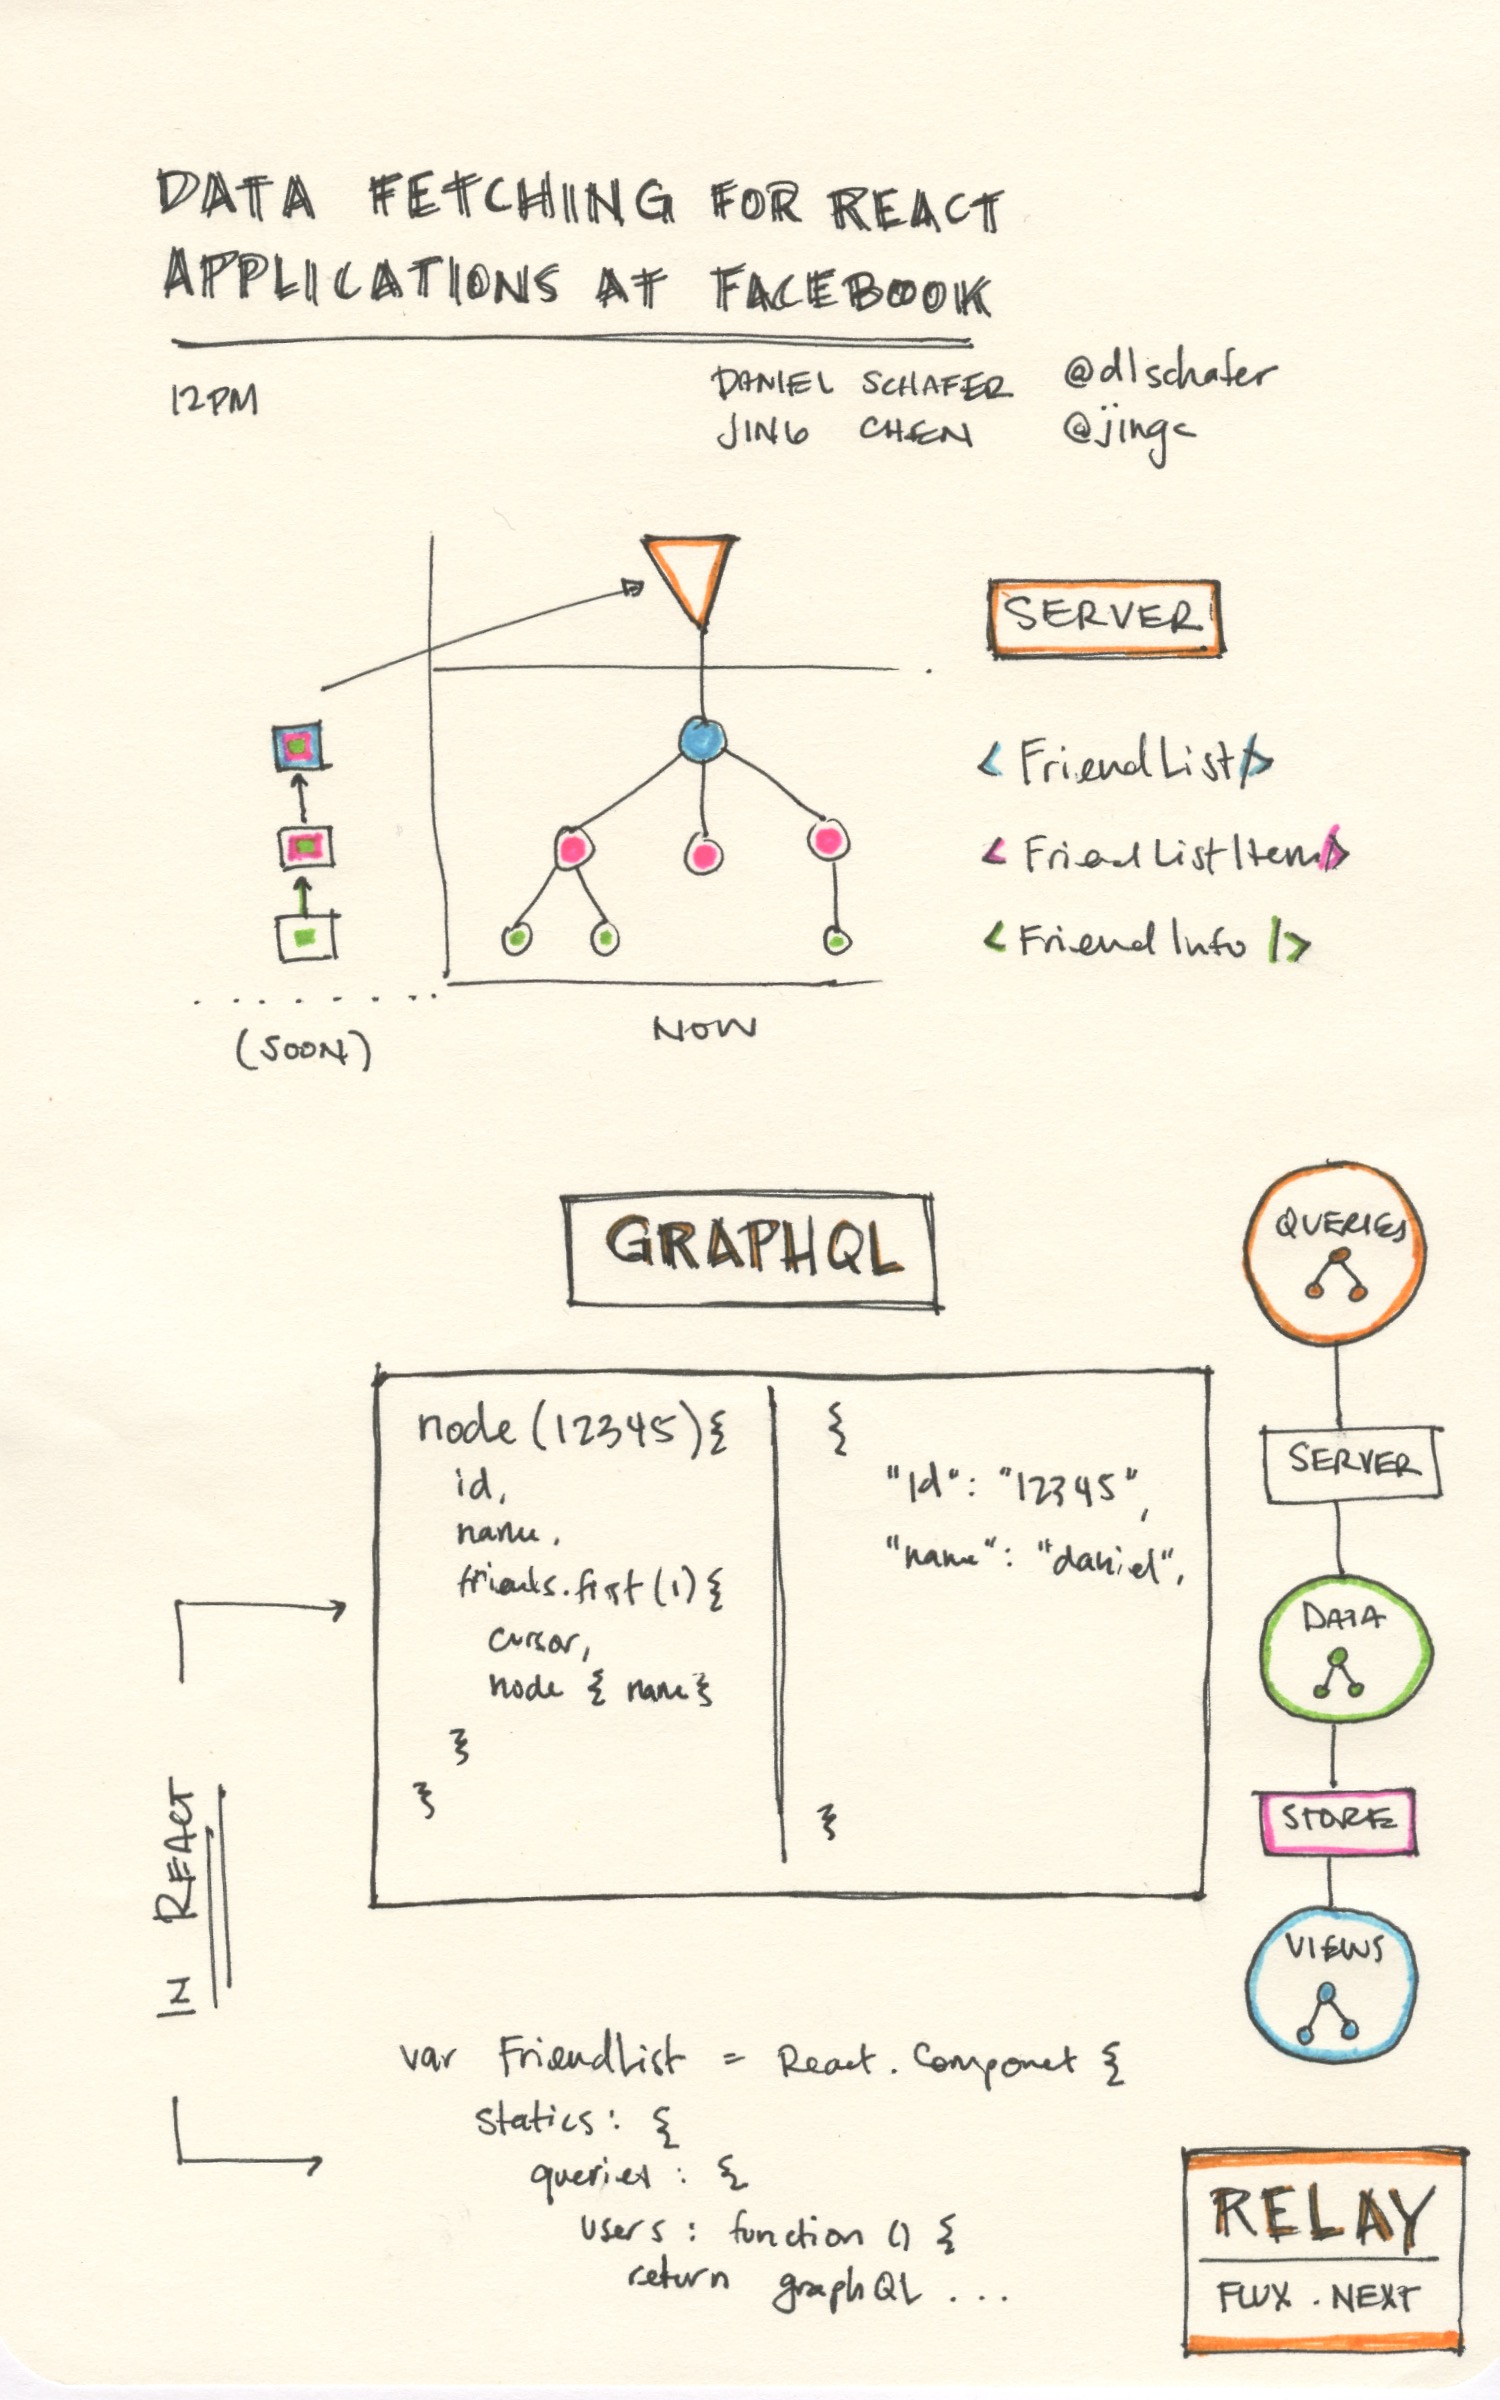 DATA FETCHING FOR REACT
APPLICATIONS AT FACEBOOK
12PM
DANIEL SCHAFER @dlschafer
JING CHEN @jingc
SERVER
<FriendList/>
<FriendListItem/>
<FriendInfo/>
(SOON)
NOW
GRAPHQL
QUERIES
SERVER
DATA
STORE
VIEWS
node(12345){
id,
name,
friends.first(1){
cursor,
node { name}
}
}
{
"id": "12345",
"name": "daniel",
}
IN REACT
var FriendList = React.Componet {
statics: {
queries: {
users: function () {
return graphQL ...
RELAY
FLUX.NEXT